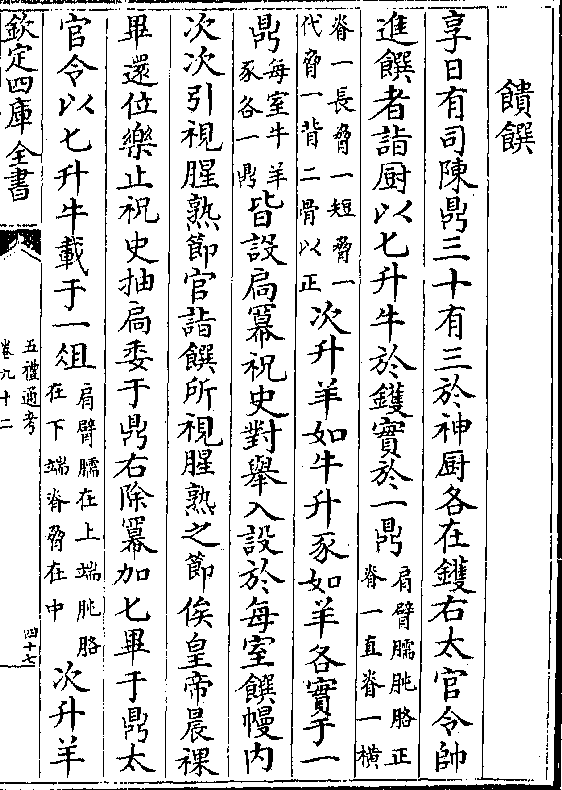 饋饌
享日有司陳鼎三十有三於神厨各在鑊右太官令帥
進饌者詣厨以匕升牛於鑊實於一鼎
肩臂臑肫胳正
脊一直脊一橫
脊一長脅一短脅一
代脅一背二骨以正
次升羊如牛升豕如羊各實于一
鼎
每室牛羊
豕各一鼎
皆設扃冪祝史對舉入設於每室饌幔内
次次引視腥熟節官詣饌所視腥熟之節俟皇帝晨祼
畢還位樂止祝史抽扃委于鼎右除冪加匕畢于鼎太
官令以匕升牛載于一俎
肩臂臑在上端肫胳
在下端脊脅在中
次升羊
欽定四庫全書
五禮通考
卷九十二
四十七